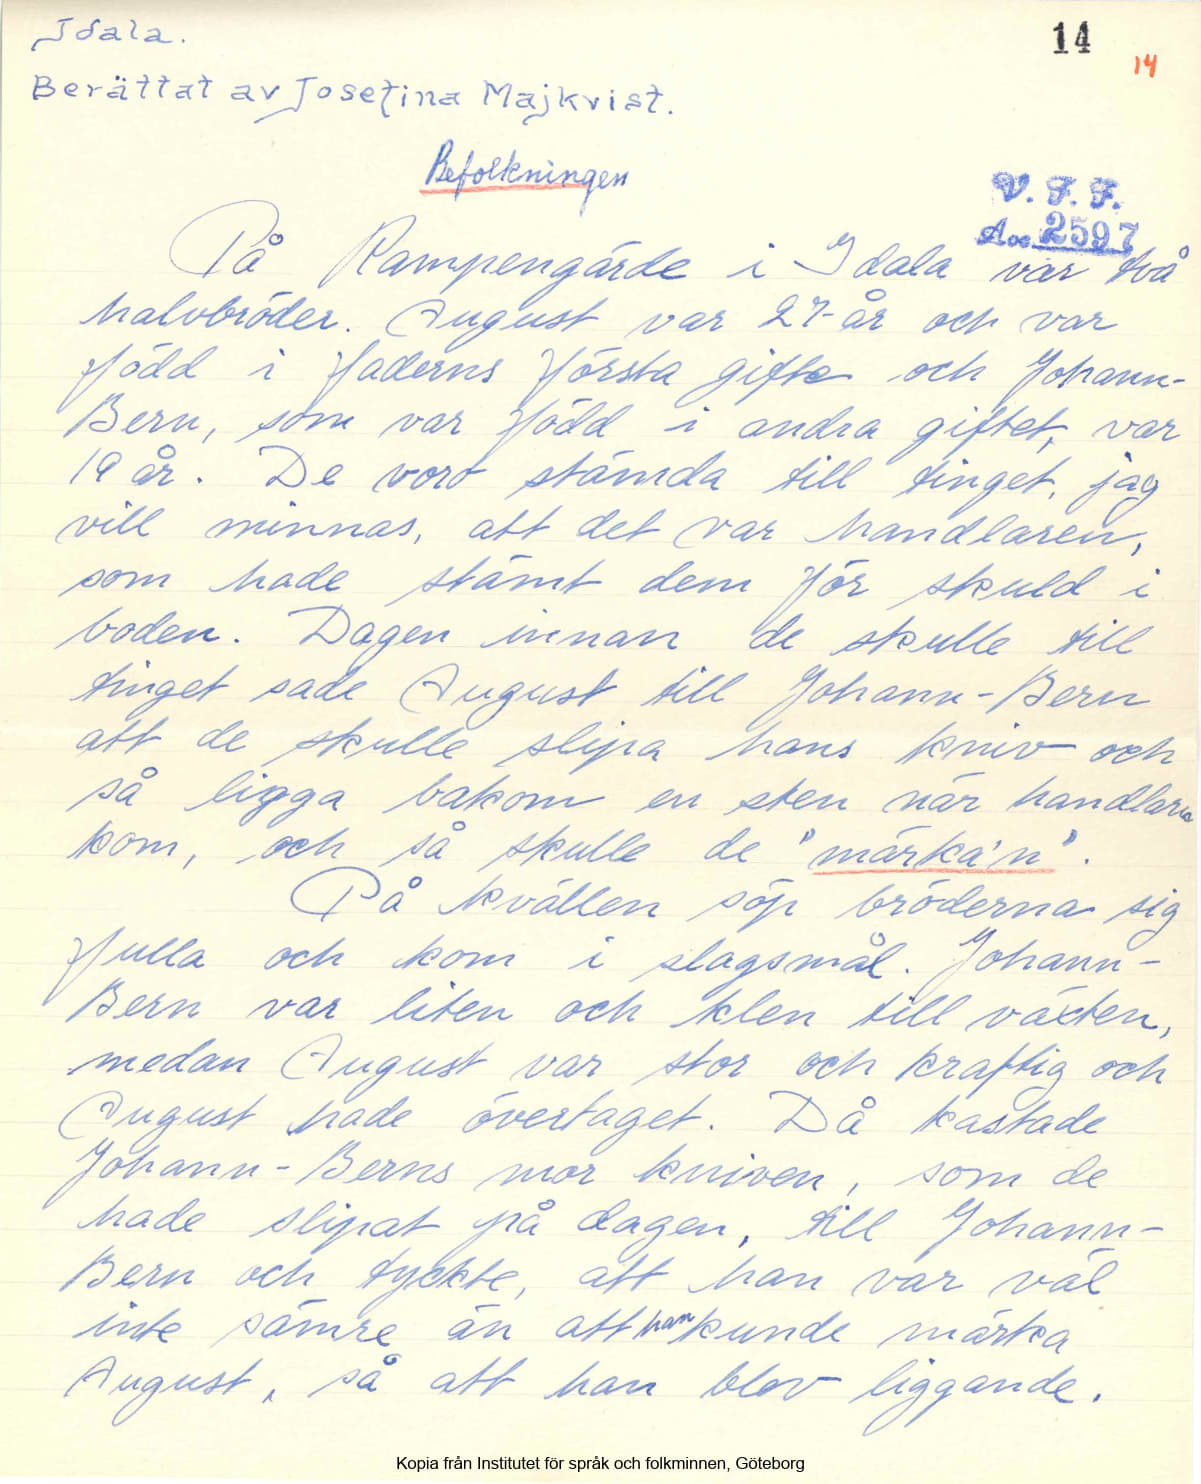 Idala.
14
14
Berättat av Josefina Majkvist.
Befolkningen
V. F. F.
Acc 2597
På Rampengärde i Idala var två
halvbröder. August var 27 år och var
född i faderns första gifte och Johann-
Bern, som var född i andra giftet, var
19 år. De voro stämda till tinget, jag
vill minnas, att det var handlaren,
som hade stämt dem för skuld i
boden. Dagen innan de skulle till
tinget sade August till Johann-Bern
att de skulle slipa hans kniv och
så ligga bakom en sten när handlarn
kom, och så skulle de "märka'n".
På kvällen söp bröderna sig
fulla och kom i slagsmål. Johann-
Bern var liten och klen till växten,
medan August var stor och kraftig och
August hade övertaget. Då kastade
Johann-Berns mor kniven, som de
hade slipat på dagen, till Johann-
Bern och tyckte, att han var väl
inte sämre än att han kunde märka
August, så att han blev liggande.
Kopia från Institutet för språk och folkminnen, Göteborg